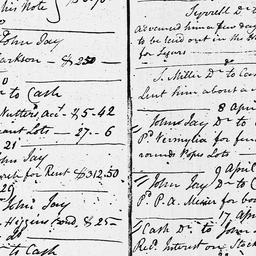 his Note
John Jay
arkson - $250 -
to Cash
Nutters, Acct - £5-42
ant Lots - 27-6
21
ohn Jay
rch for Rent $312.50
29
John Jay
Higgins Cond, $25-
to Cash
Tyrrell Dr
received him a few day
to be laid out in the H
for Segars
S. Miller Dr to Cash
Lent him about a
8 April
John Jay Dr to C
Pd. Vermylia for fun
rounds Popes Lots
9 April
John Jay Dr to C
Pd P. A. Mesier for bo
17 April
Cash Dr to John
Recd. Interest on Stock